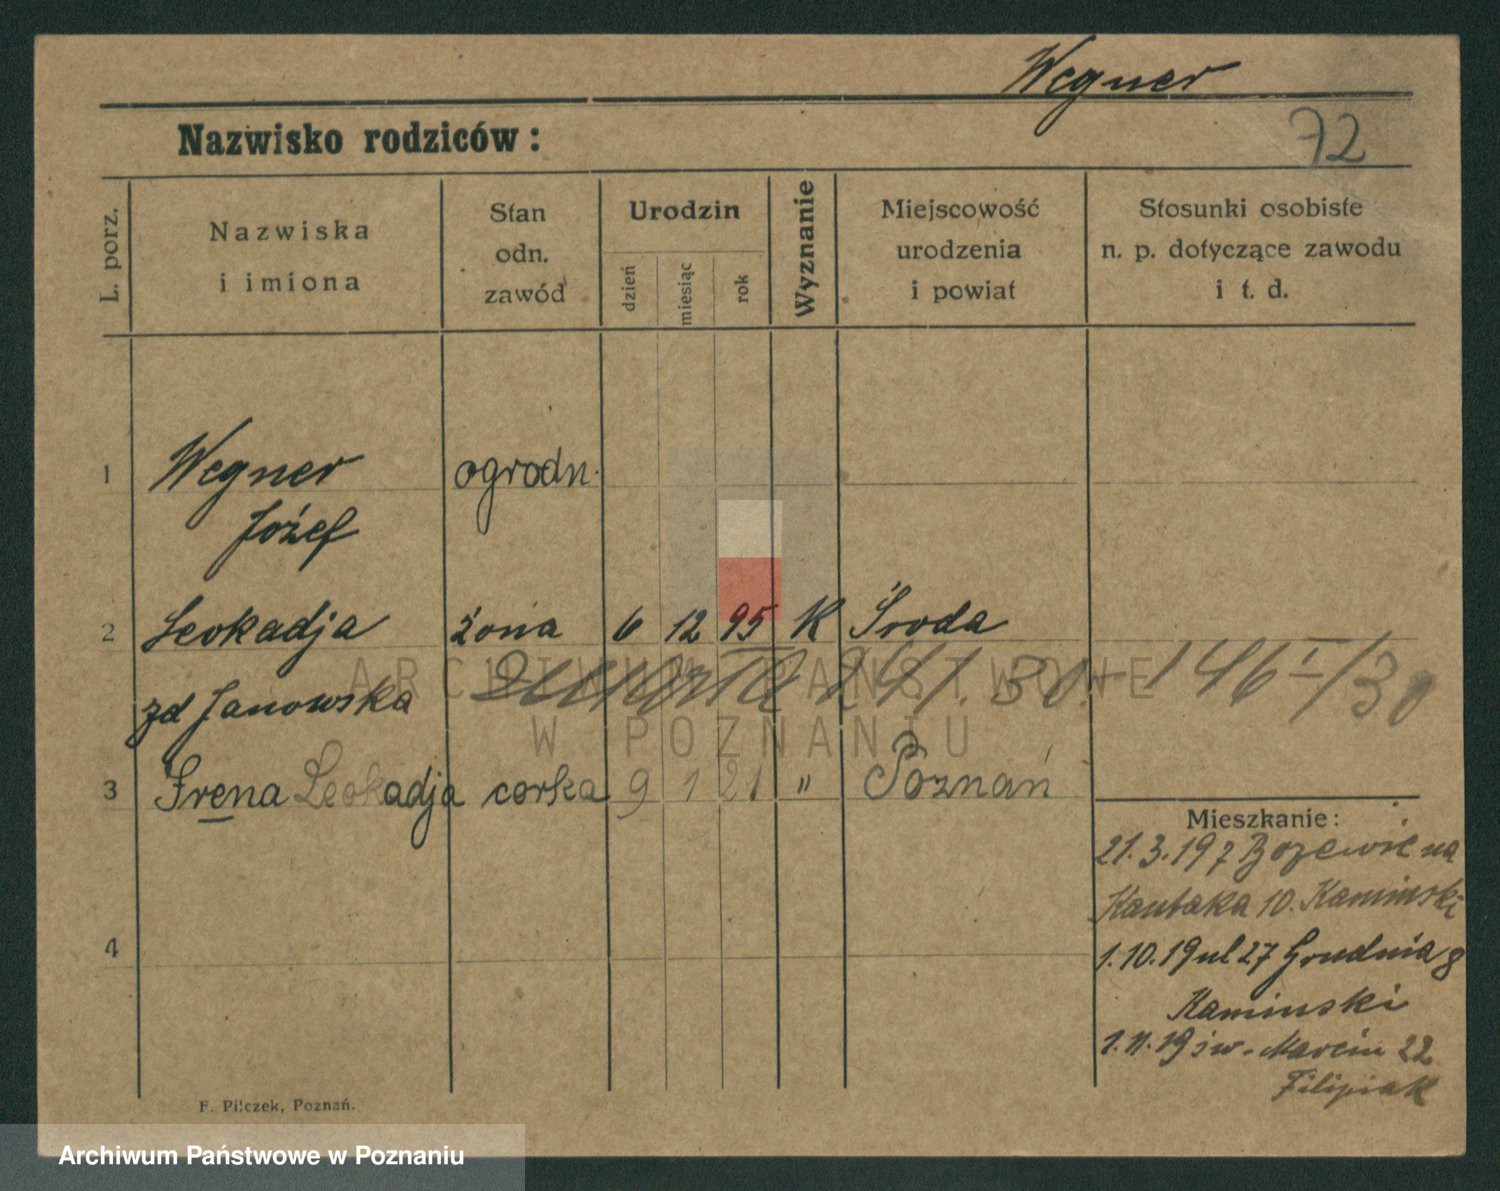 Wegner
72
Nazwisko rodziców:
L. porz.
Nazwiska
i imiona
Stan
odn.
zawód
Urodzin
dzień
miesiąc
rok
Wyznanie
Miejscowość
urodzenia
i powiat
Stosunki osobiste
n. p. dotyczące zawodu
i t. d.
1 Wegner ogrodn.
Józef
2 Leokadja żona 6 12 95 K Środa
ARCHIWUM PAŃSTWOWE
24/1.30. 146 I/30
zd Janowska
W POZNANIU
3 Irena Leokadja corka 9 1 21 " Poznań
Mieszkanie:
21.3.19 z na
10. Kaminski
4
1.10.19 ul 27 Grudnia 8
Kaminski
1.11.19 św. Marcin 22
Filipiak
F. Pilczek, Poznań.
Archiwum Państwowe w Poznaniu